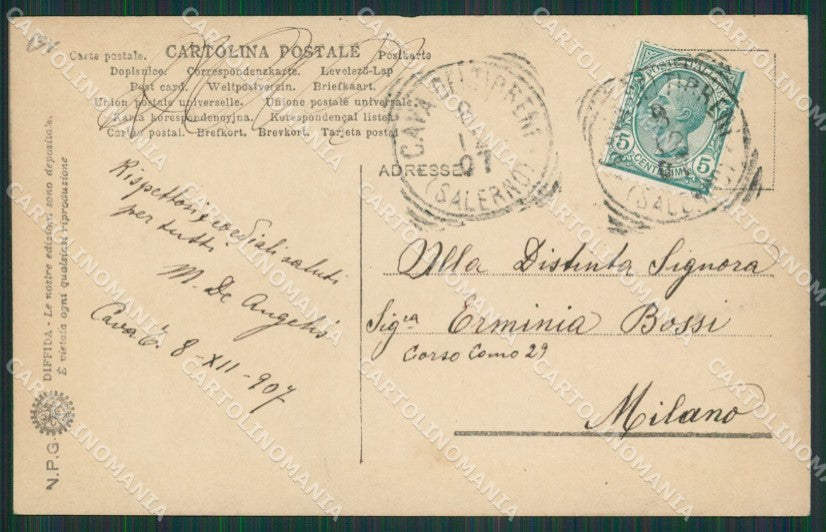 Carte postale. CARTOLINA POSTALE Postkarte
Dopisnice. Correspondenzkarte. Levelező-Lap
Post card. Weltpostverein. Briefkaart.
Union postale universelle. Unione postale universale
Karta korespondencyjna. Korespondengai listek
Cartão postal. Brefkort. Brevkort. Tarjeta postal
ADRESSE
CAVA DEI TIRRENI
8
12
07
(SALERNO)
POSTE ITALIANE
5 CENTESIMI 5
Rispettosi, cordiali saluti
per tutti
M. De Angelis
Cava T. 8-XII-907
Alla Distinta Signora
Sigra Erminia Bossi
Corso Como 29
Milano
DIFFIDA - Le nostre edizioni sono depositate.
È vietata ogni qualsiasi riproduzione
N.P.G.
CARTOLINOMANIA